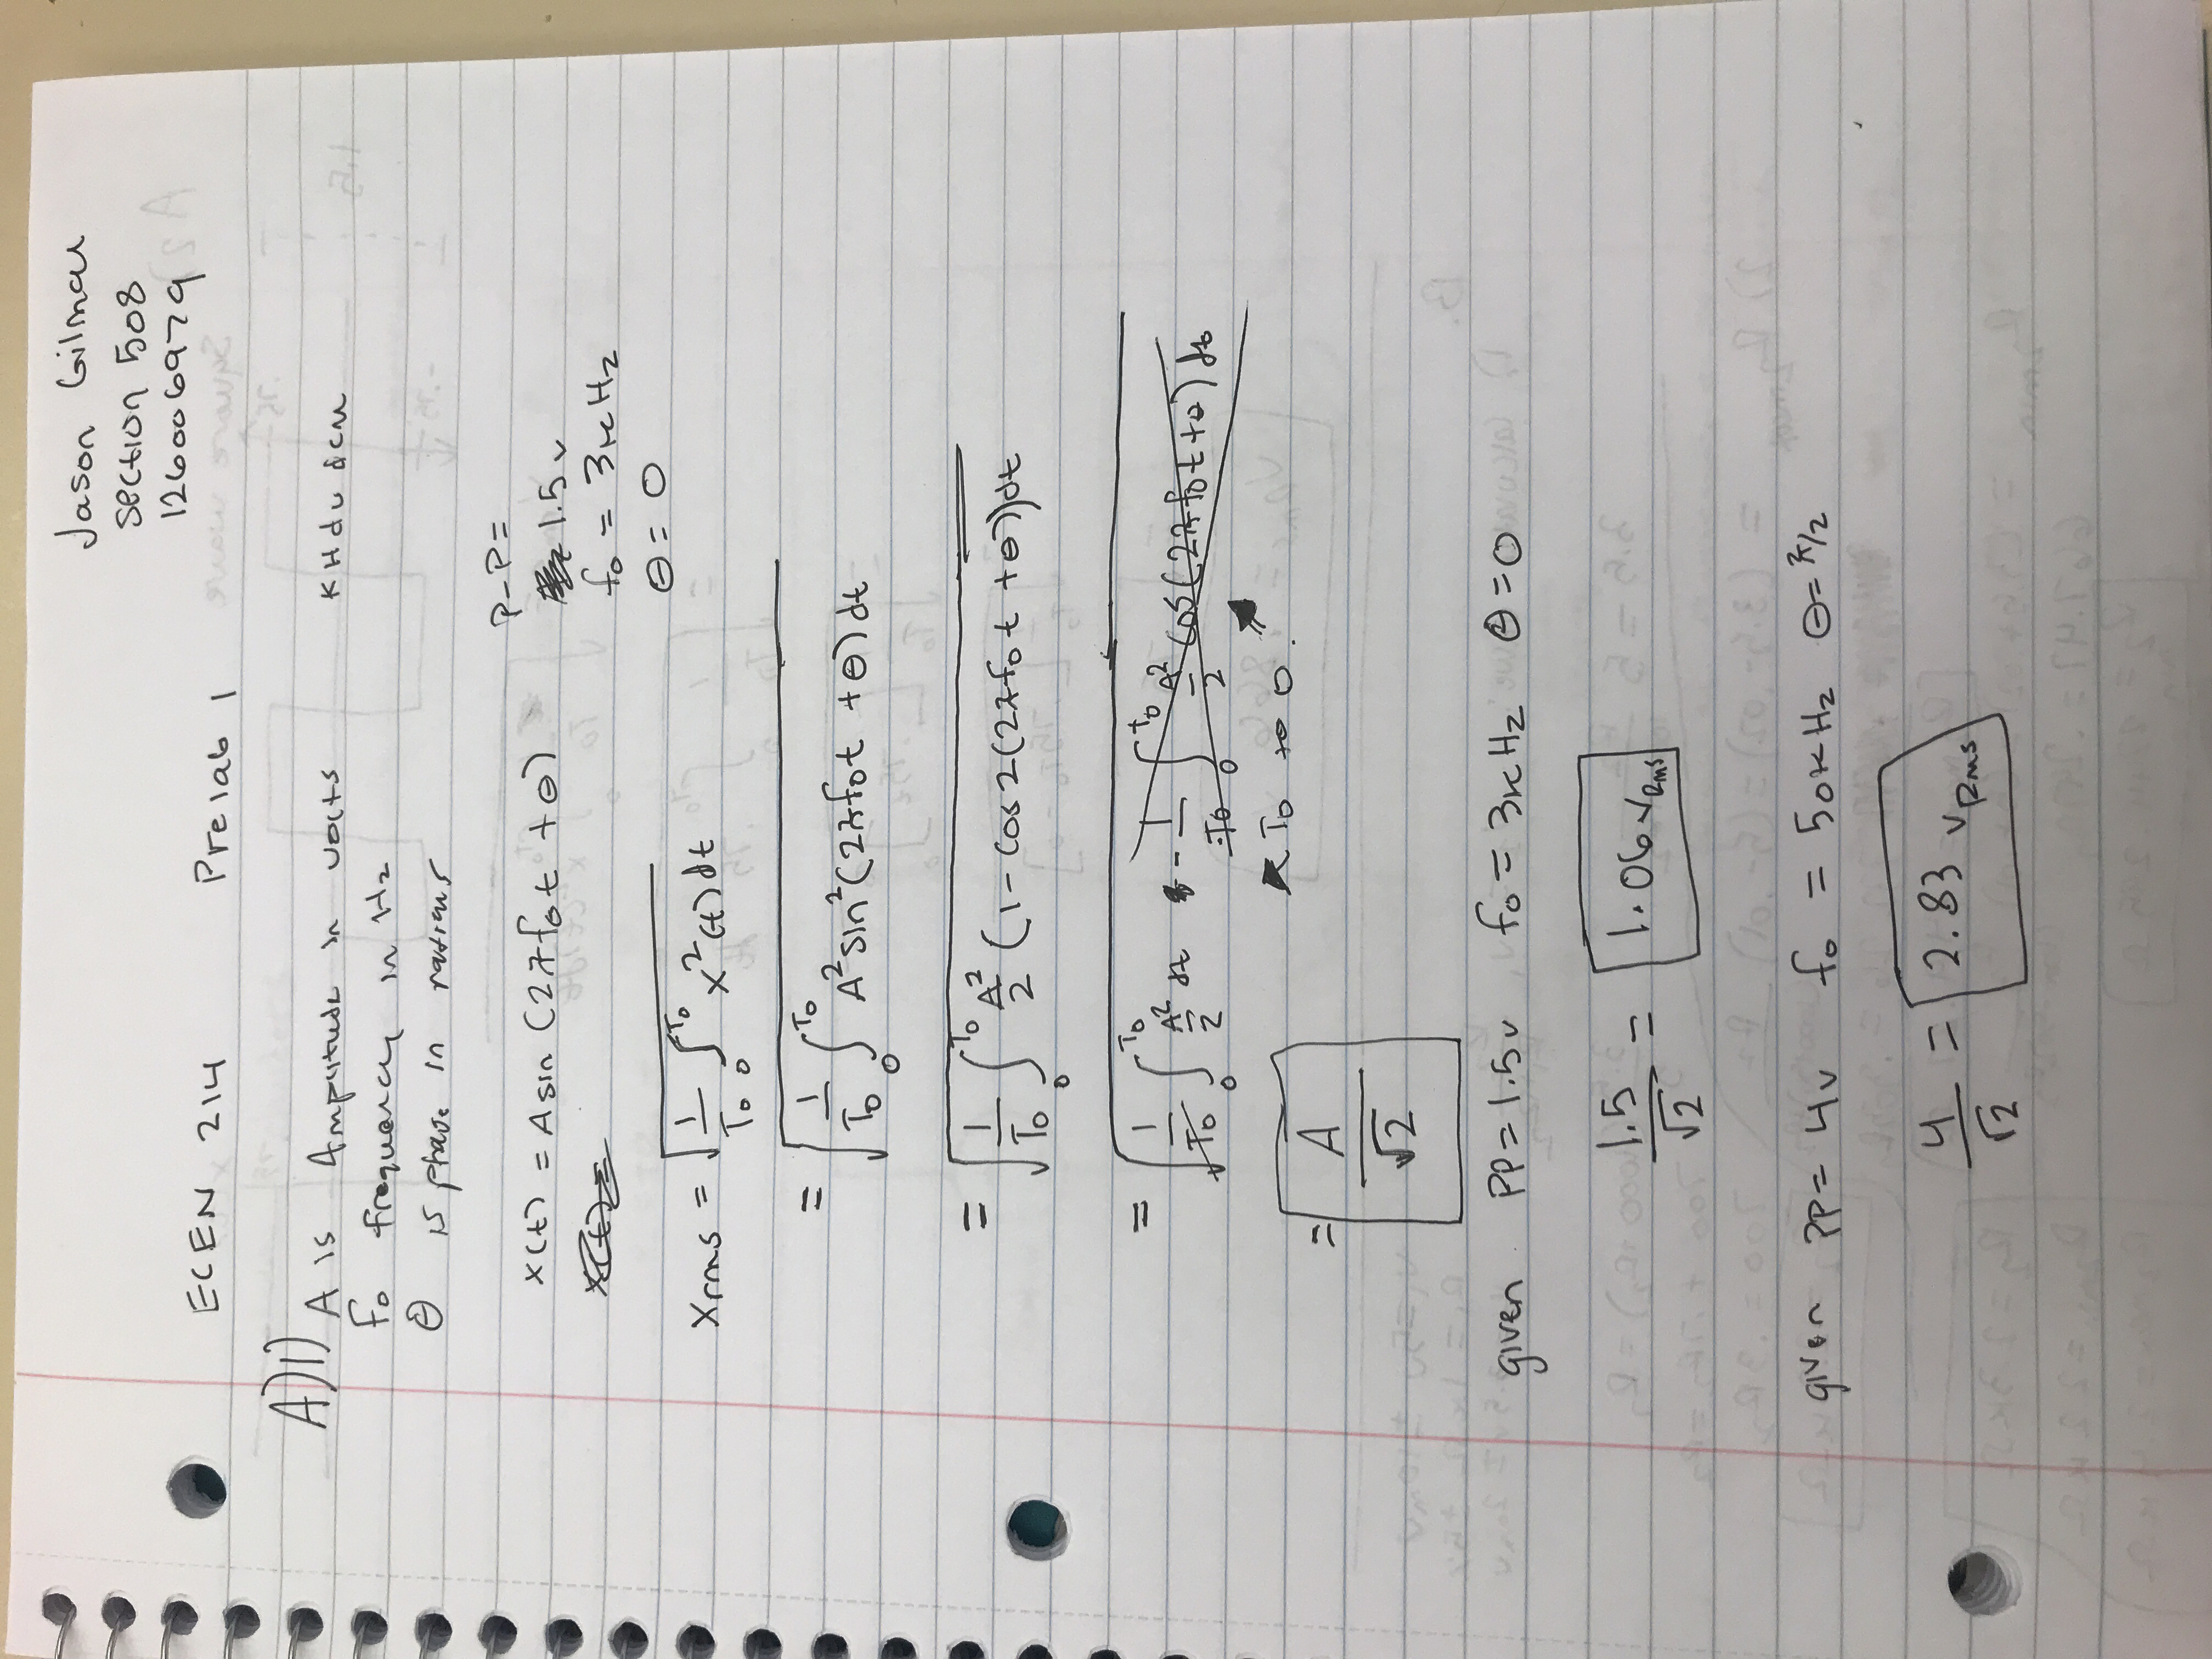 Jason Gilmar
section 508
126006979
ECEN 214 Prelab 1
A)1) A is Amplitude in volts
f₀ frequency in Hz
θ is phase in radians
P-P=
x(t) = A sin (2πf₀t + θ)
1.5 v
x(t) =
f₀ = 3k Hz
θ = 0
Xrms = √(1/T₀ ∫₀^T₀ x²(t) dt)
= √(1/T₀ ∫₀^T₀ A² sin²(2πf₀t + θ) dt)
= √(1/T₀ ∫₀^T₀ A²/2 (1 - cos 2(2πf₀t + θ)) dt)
= √(1/T₀ ∫₀^T₀ A²/2 dt - 1/T₀ ∫₀^t₀ A²/2 cos(2πf₀t + θ) dt)
T₀ to 0.
= A/√2
given PP = 1.5v f₀ = 3k Hz θ = 0
1.5/√2 = 1.06 VRms
given PP = 4v f₀ = 50k Hz θ = π/2
4/√2 = 2.83 VRms